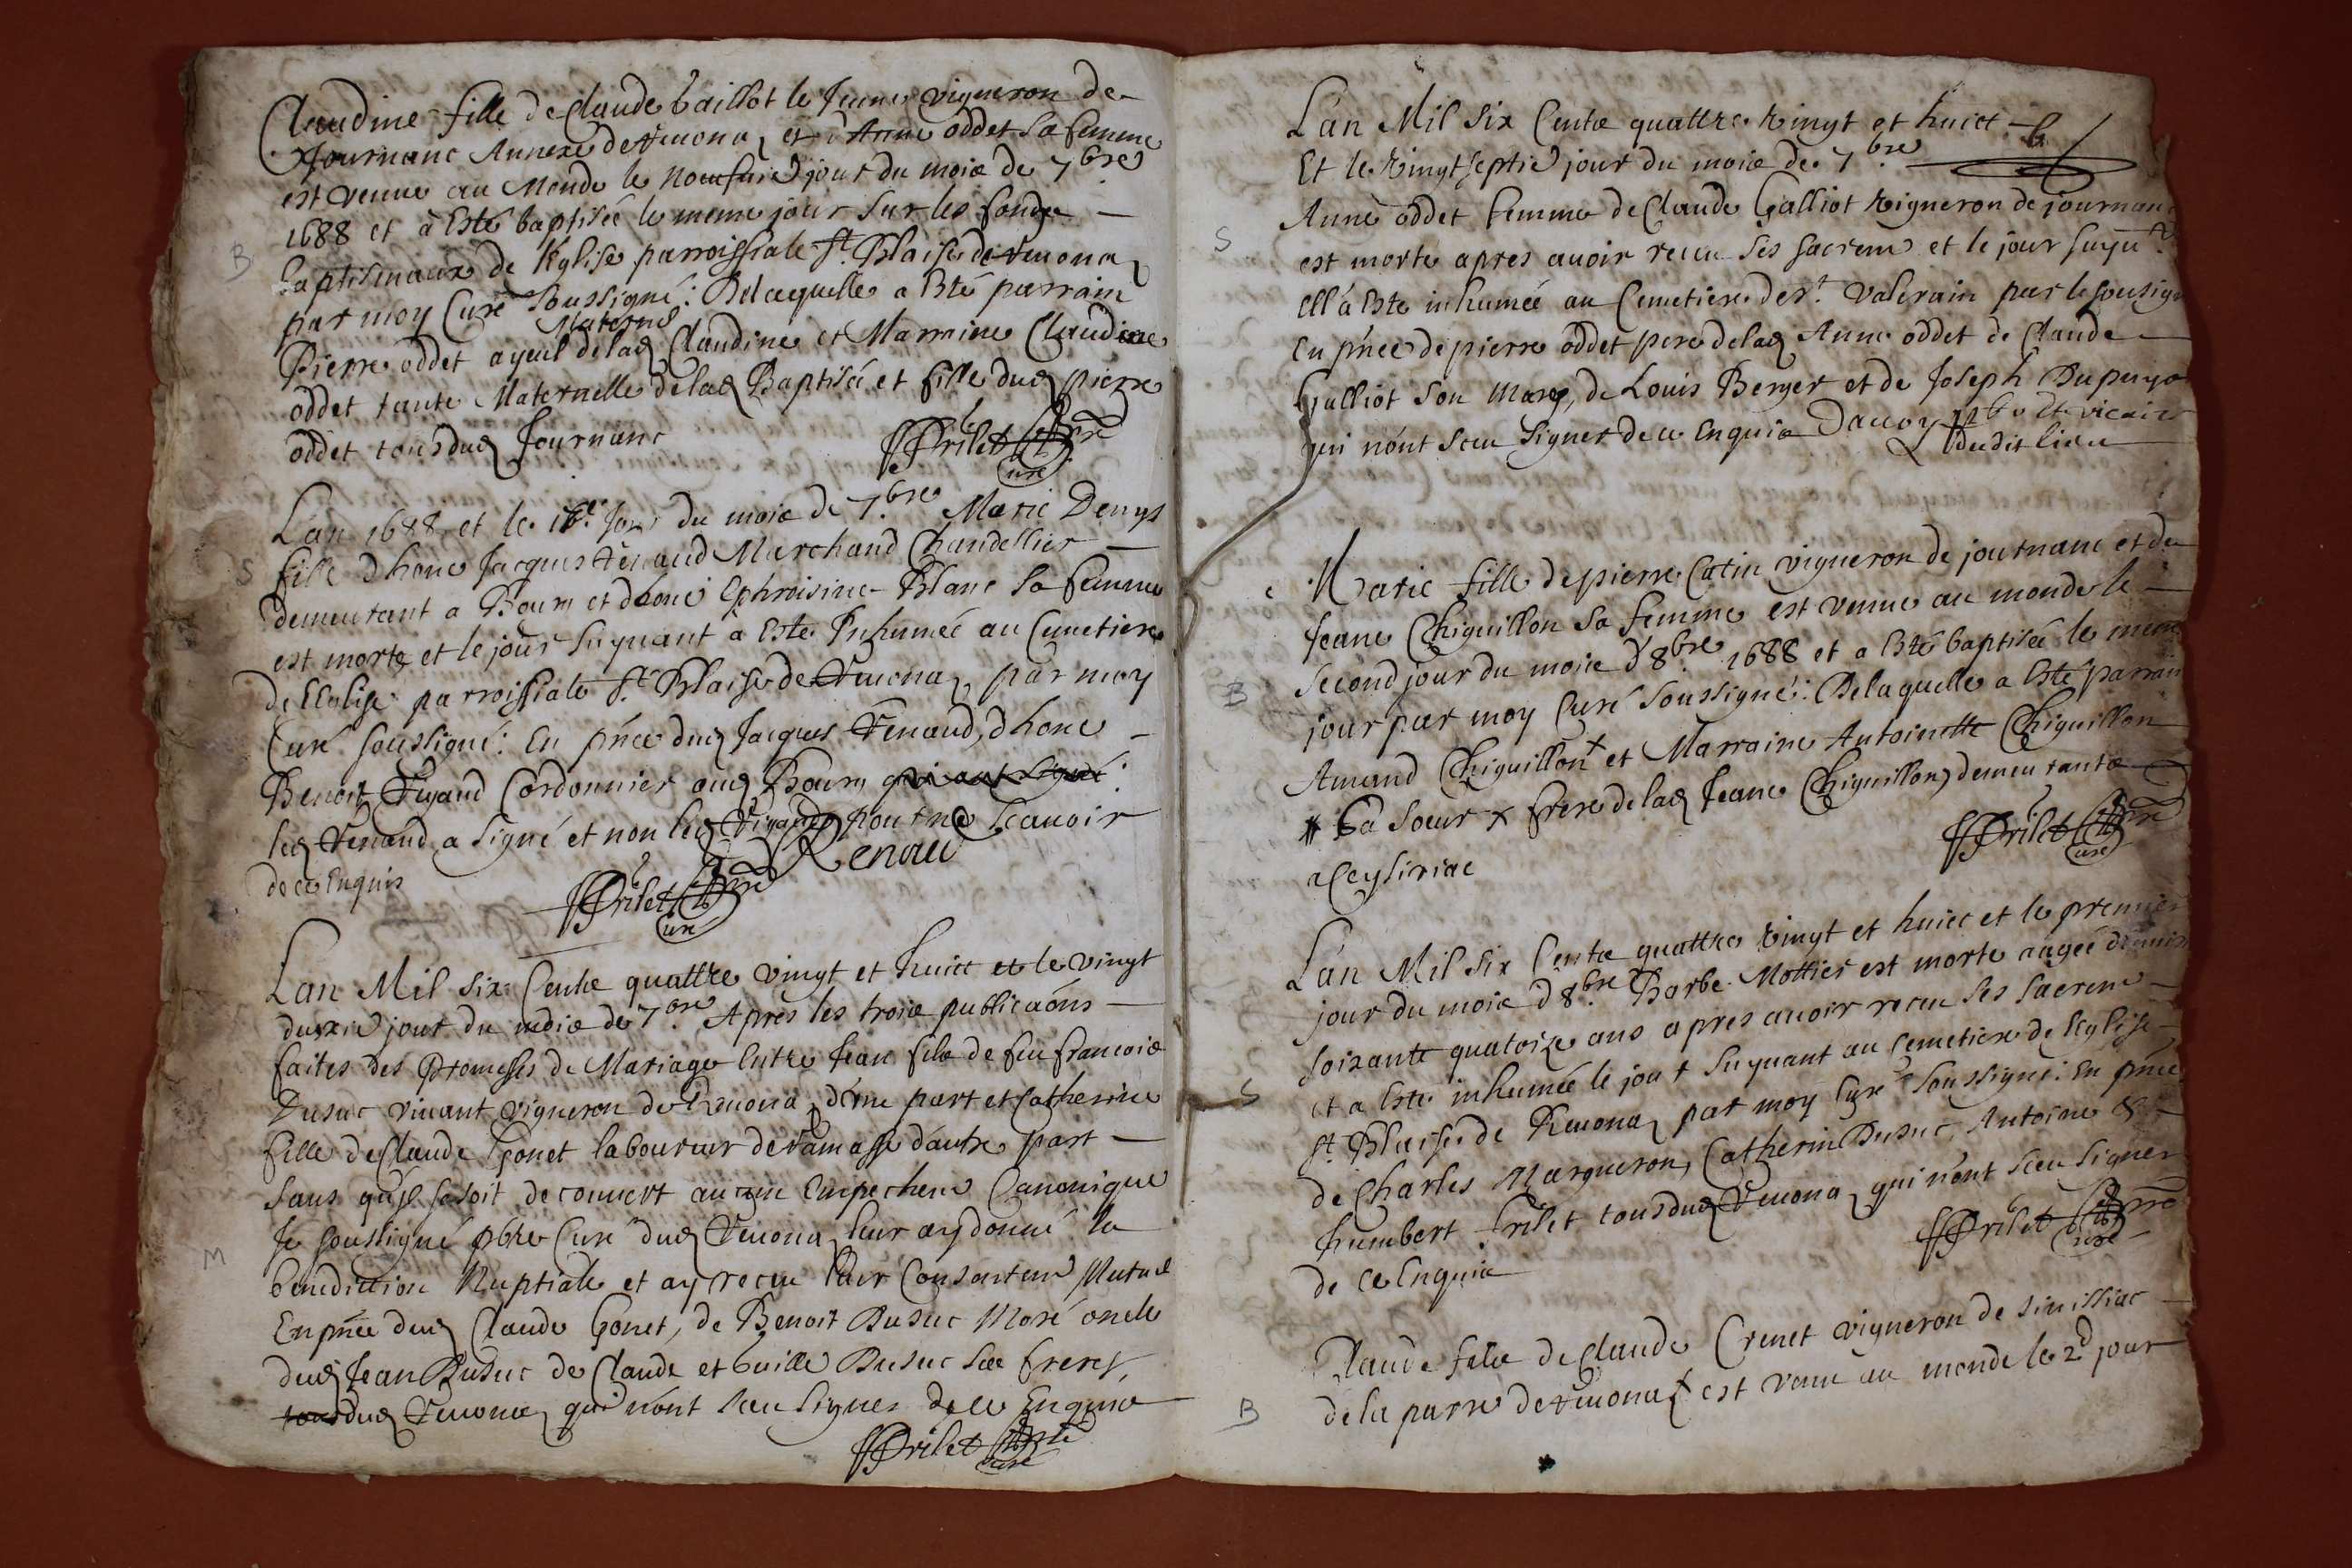 Claudine fille de Claude Gaillot le Jeune vigneron de
Journanc Annexe de Reuonaz et d'Anne oddet sa femme
est venue au Monde le noeufuie jour du mois de 7.bre
1688 et à Esté baptisée le meme jour sur les fonds
B
baptismaux de l'Eglise parroissiale St. Blaise de Reuonaz
par moy Curé soussigné: De laquelle a Esté parrain
Maternel
Pierre oddet ayeul de lad Claudine et Marraine Claudine
oddet tante Maternelle de lad Baptisée et fille dud pierre
oddet tous dud Journanc
Prilet
Curé
L'an 1688 et le jour du mois de 7.bre Marie Denys
S
fille d'hone Jacques Renaud Marchand Chandellier
demeurant a Bourg et d'hone Ephroisine Blanc sa femme
est morte et le jour suyuant à Esté Inhumée au Cimetiere
de l'Eglise parroissiale St. Blaise de Reuonaz par moy
Curé soussigné: En pnce dud Jacques Renaud, d'hone
Benoit Cordonnier aud Bourg qui ont signé:
led Renaud a signé et non led pour ne scauoir
Renau
de ce Enquis
Prilet
Curé
L'an Mil six Cents quattre vingt et huict et le vingt
duxie jour du mois de 7.bre Apres les trois publicaôns
faites des Promesses de Mariage Entre Jean fils de feu francois
Dusuc viuant vigneron de Reuonaz d'une part et Catherine
fille de Claude Gonet laboureur de Ramasse d'autre part
sans qu'il se soit decouuert aucun Empecheme Canonique
M
Je soussigné pbre Curé dud Reuonaz leur ay donné la
benediction Nuptiale et ay receu leur Consenteme Mutuel
En pnce dud Claude Gonet, de Benoit Dusuc Moré oncle
dud Jean Dusuc de Claude et Guille Dusuc ses freres
tous dud Reuonaz qui n'ont sceu signer de ce Enquis
Prilet
Curé
L'an Mil six Cents quattre vingt et huict
Et le vingt septie jour du mois de 7.bre
Anne oddet femme de Claude Galliot vigneron de journanc
S
est morte apres auoir receu ses sacrem et le jour suyu
ell'a Esté inhumée au Cemetiere de st. Valerain par le sousigné
en pnce de pierre oddet pere de lad Anne oddet de Claude
Galliot son mary, de Louis Berger et de Joseph Dupuys
qui n'ont sceu signer de ce Enquis Dauoy pbre et vicaire
dudit lieu
Marie fille de pierre Catin vigneron de journanc et de
Jeane Chiguillon sa femme est venue au monde le
second jour du mois d'8.bre 1688 et a Esté baptisée le meme
B
jour par moy Curé soussigné: De laquelle a Esté parrain
Amand Chiguillon + et Marraine Antoinette Chiguillon
sa soeur + frere de lad Jeane Chiguillon, demeurants
a Ceysiriac
Prilet
Curé
L'an Mil six Cents quattre vingt et huict et le premier
jour du mois d'8.bre Barbe Mottier est morte aagée
soixante quatorze ans apres auoir receu ses sacrem
et a Esté inhumée le jour suyuant au Cemetiere de l'Eglise
S
st. Blaise de Reuonaz par moy Curé soussigné: En pnce
de Charles Margueron, Catherin Dusuc, Antoine &
humbert Prilet tous dud Reuonaz qui n'ont sceu signer
de ce Enquis
Prilet
Curé
Claude fils de Claude Crenet vigneron de simissiac
B
de la parre de Reuonaz est venu au monde le 2d jour